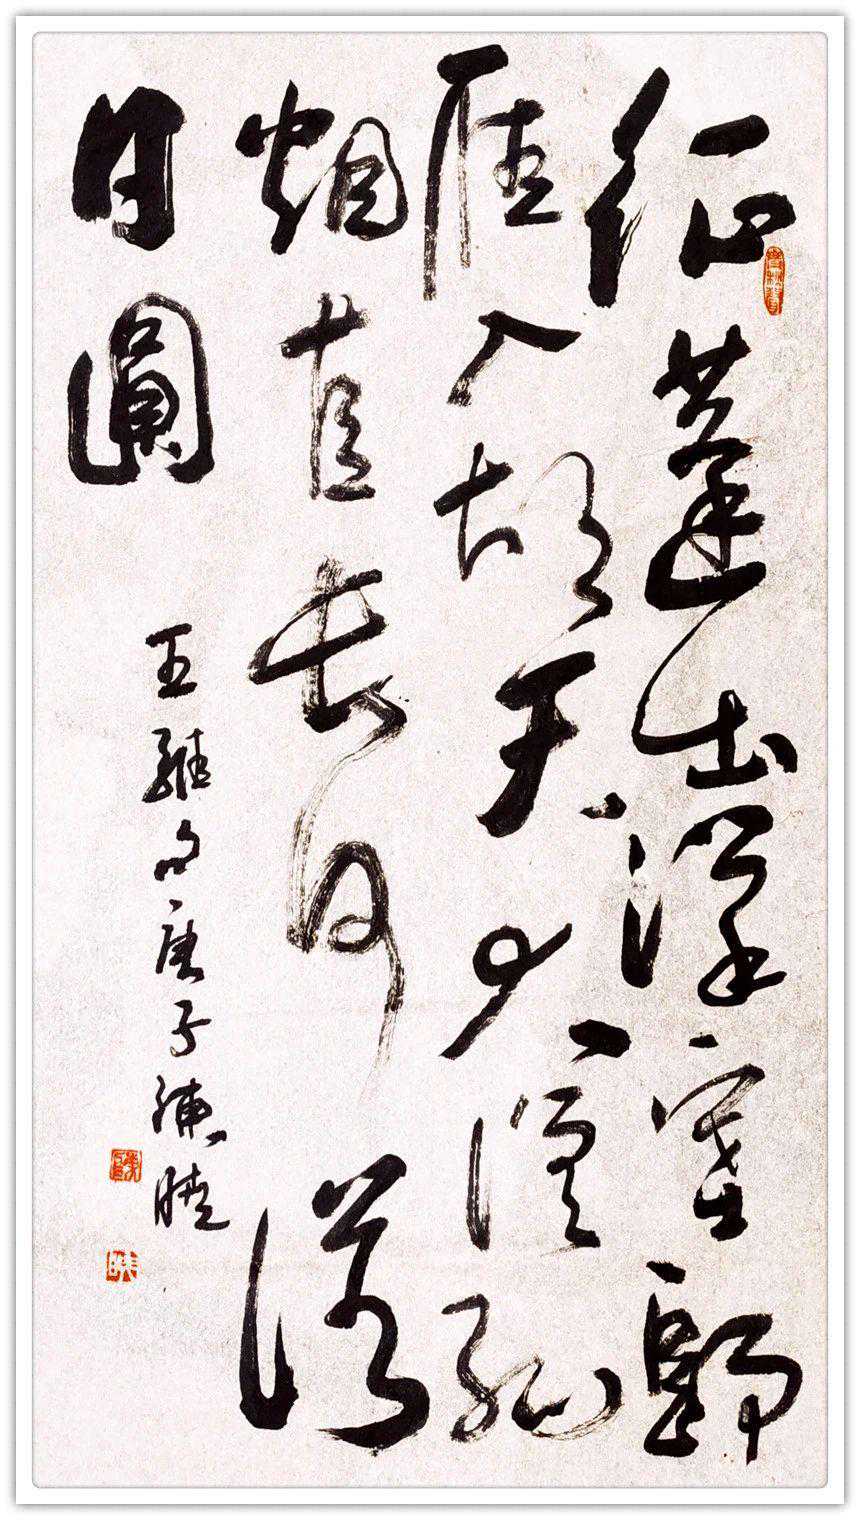 征蓬出漢塞歸
雁入胡天大漠孤
烟直長河落
日圓
王維句庚子